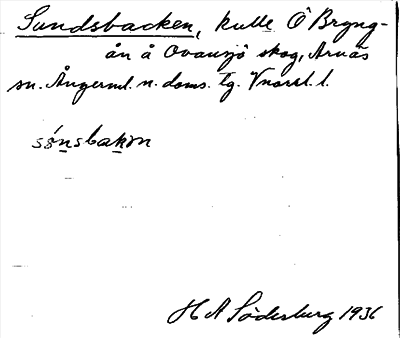 Sundsbacken, kulle Ö Bryng-
ån å Ovansjö skog, Arnäs
sn. Ångerml. n. doms. tg. Vnorrl. l.
sǿnsbakɔn
H A Söderburg 1936